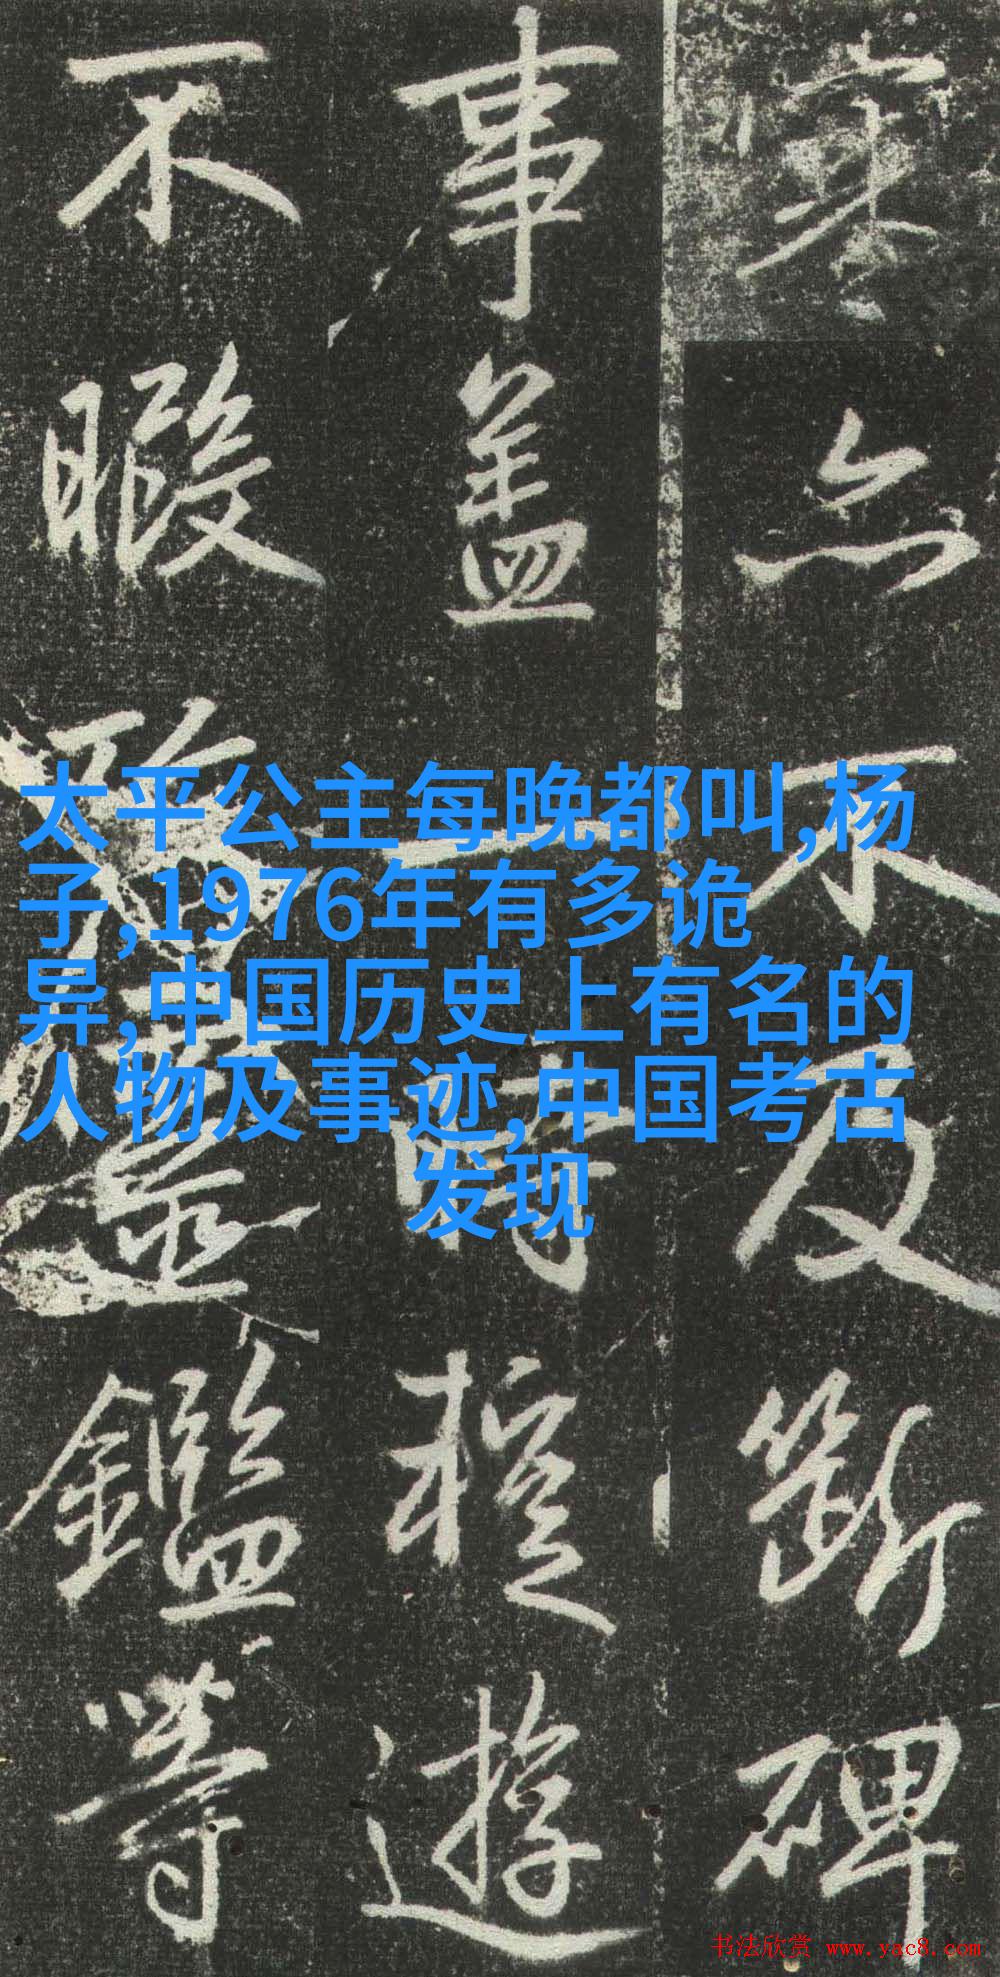 寒亦不及斷碑
事蓋一時
遊
不暇
鑑等
太平公主每晚都叫,杨
子,1976年有多诡
异,中国历史上有名的
人物及事迹,中国考古
发现
书法欣赏 www.yac8.com